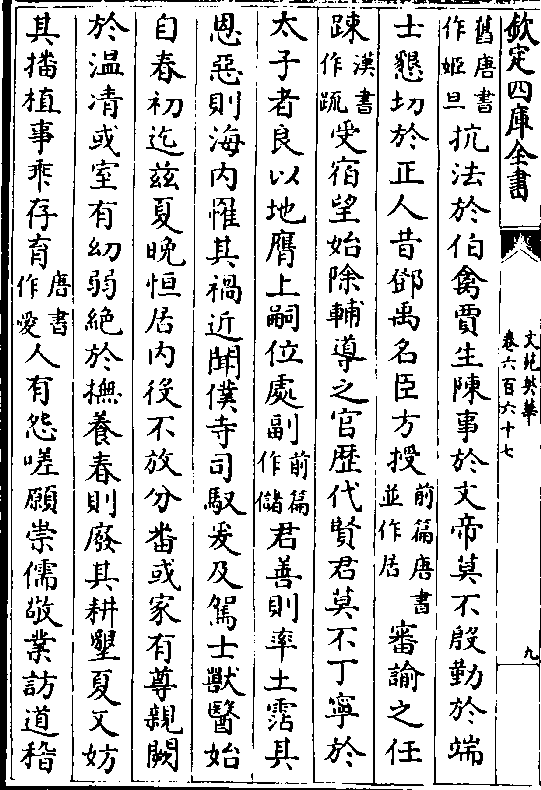 欽定四庫全書
文苑英華
卷六百六十七
九
舊唐書作姬旦抗法於伯禽賈生陳事於文帝莫不殷勤於端
士懇切於正人昔鄧禹名臣方授前篇唐書並作居審諭之任
踈漢書作疏受宿望始除輔導之官歴代賢君莫不丁寧於
太子者良以地膺上嗣位處副前篇作儲君善則率土霑其
恩惡則海内惟其禍近聞僕寺司馭爰及駕士獸醫始
自春初迄兹夏晩恒居内役不放分畨或家有尊親闕
於温凊或室有幼弱絶於撫養春則廢其耕墾夏又妨
其播植事乖存育唐書作愛人有怨嗟願崇儒敬業訪道稽